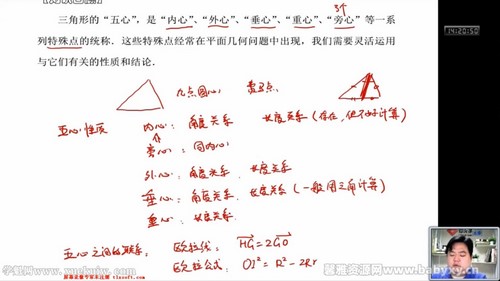 3个
三角形的“五心”，是“内心”、“外心”、“垂心”、“重心”、“旁心”等一系
列特殊点的统称．这些特殊点经常在平面几何问题中出现，我们需要灵活运
用与它们有关的性质和结论．
14:20:50
五心性质 内心：角度关系 长度关系（存在，但不好计算）
旁心：同内心
外心：角度关系 长度关系
垂心：角度关系 长度关系（一般用三角计算）
重心：长度关系
五心之间的联系： 欧拉线：HG=2GO
欧拉公式：OI²=R²-2Rr
馨雅资源网 www.babyxy.cn